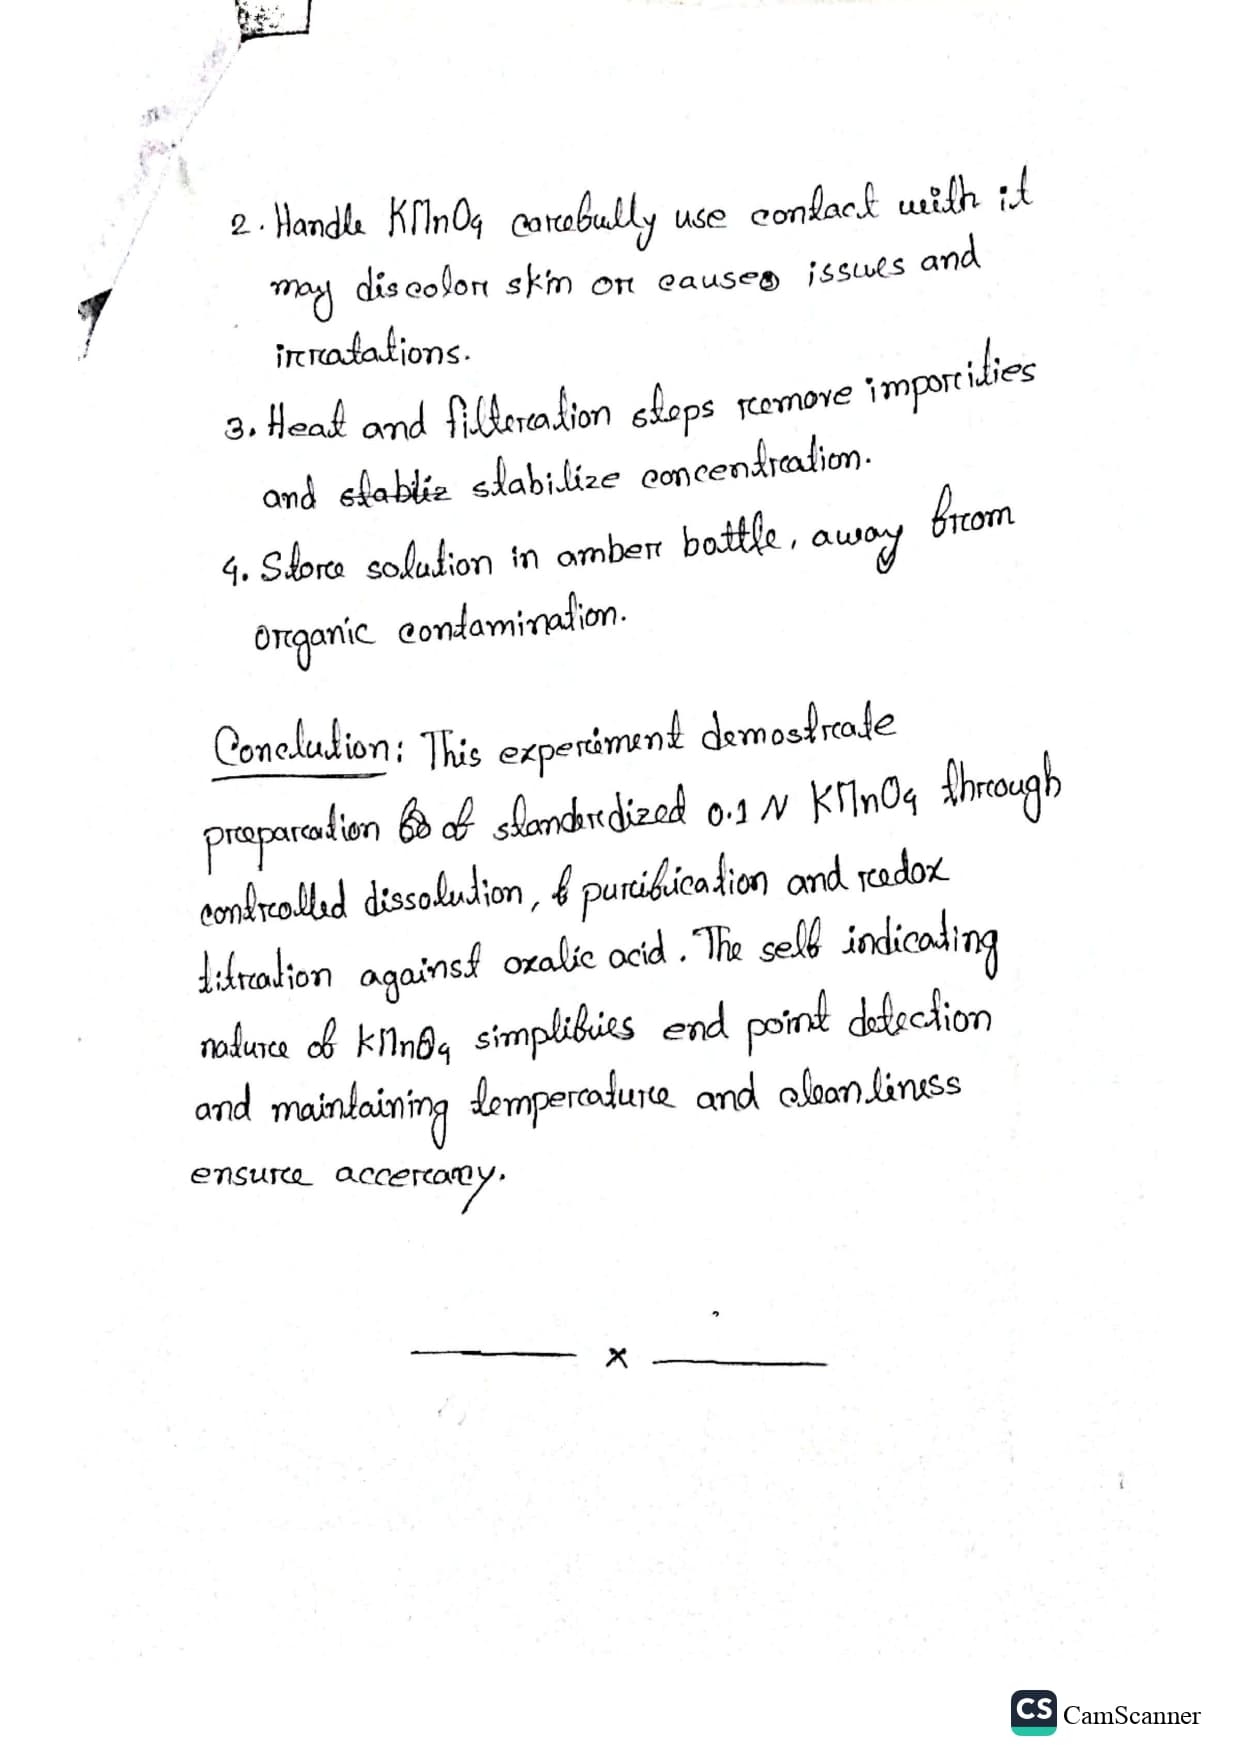 2. Handle KMnO4 carefully use contact with it
may discolor skin or causes issues and
irratations.
3. Heat and filteration steps remove imporities
and stabliz stabilize concentration.
4. Store solution in amber bottle, away from
organic contamination.
Conclution: This experiment demostrate
preparation of standerdized 0.1 N KMnO4 through
controlled dissolution, purification and redox
titration against oxalic acid. The self indicating
nature of KMnO4 simplifies end point detection
and maintaining temperature and cleanliness
ensure accercany.
x
CS CamScanner